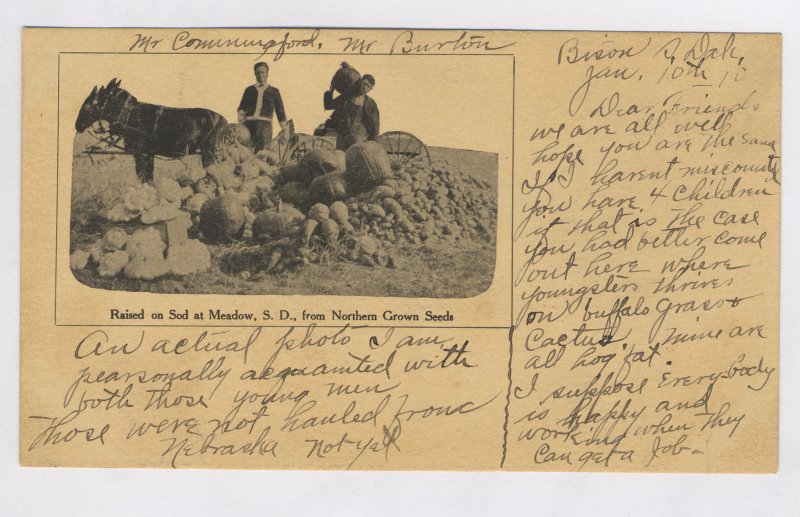 Mr Commingsford, Mr Burton
Raised on Sod at Meadow, S. D., from Northern Grown Seeds
An actual photo I am
pearsonally acquainted with
both those young men
Those were not hauled from
Nebraska not yet
Bison S. Dak,
Jan, 10th 10
Dear Friends
we are all well
hope you are the same
If I havent miscounted
you have 4 children
if that is the case
you had better come
out here where
youngsters thrives
on buffalo Grass &
Cactus. mine are
all hog fat.
I suppose Every-body
is happy and
working when They
Can get a Job-